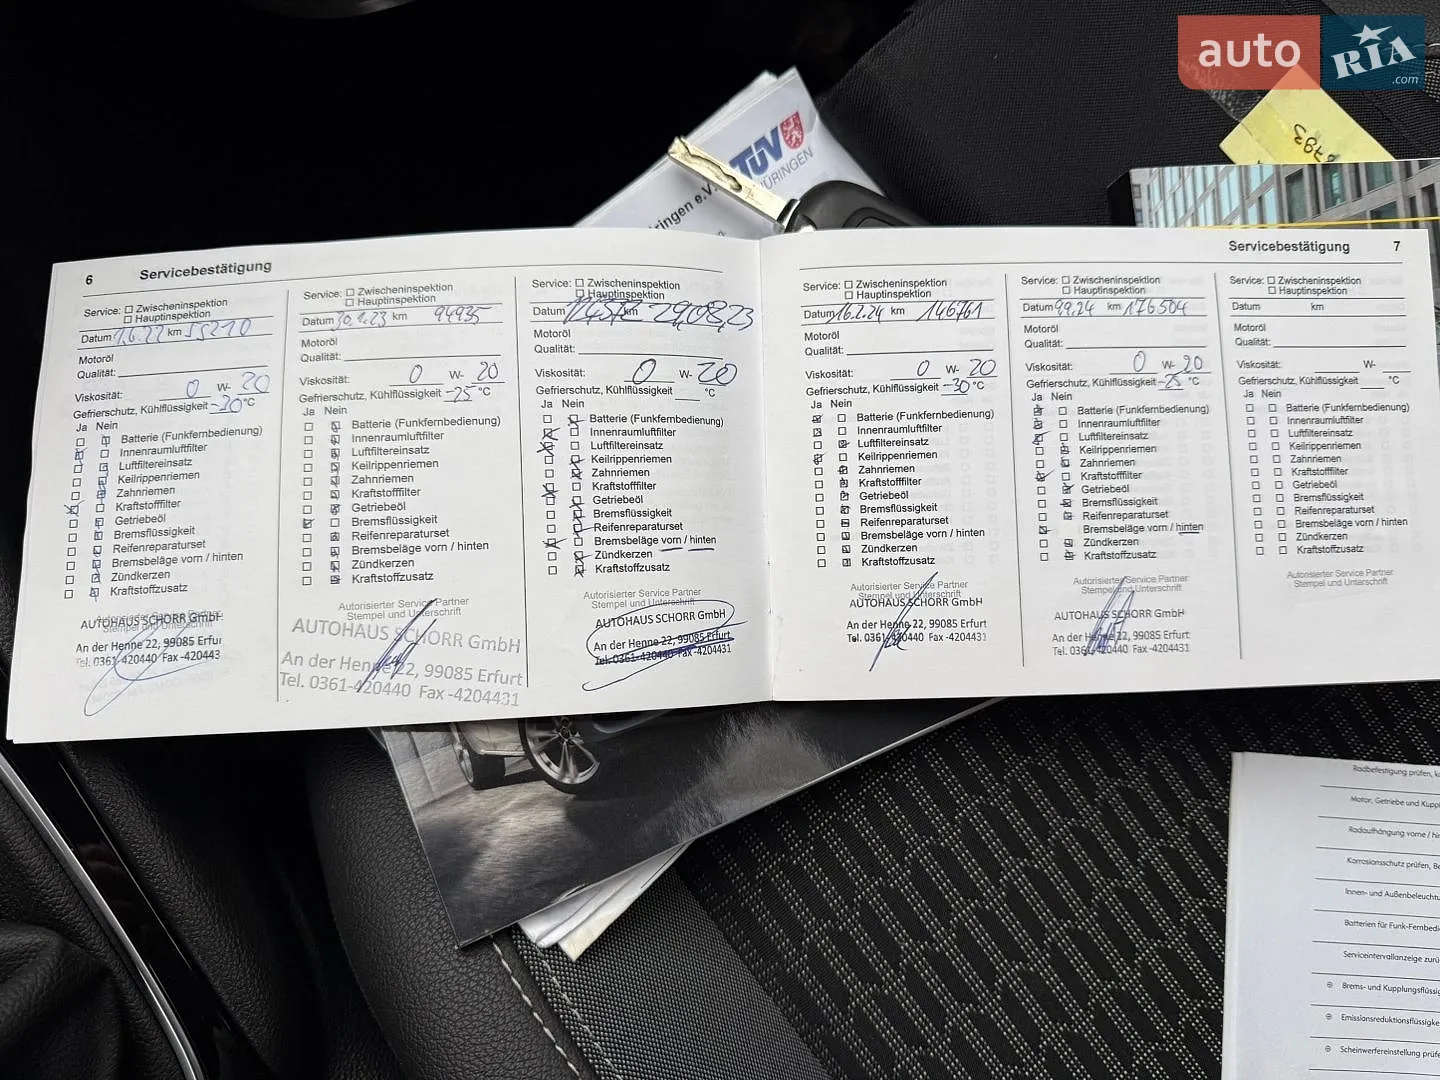 auto RIA .com
TÜV
THÜRINGEN
6 Servicebestätigung
Service: Zwischeninspektion
Hauptinspektion
Datum 1.6.22 km 55210
Motoröl
Qualität:
Viskosität: 0 W- 20
Gefrierschutz, Kühlflüssigkeit -30 °C
Ja Nein
Batterie (Funkfernbedienung)
Innenraumluftfilter
Luftfiltereinsatz
Keilrippenriemen
Zahnriemen
Kraftstofffilter
Getriebeöl
Bremsflüssigkeit
Reifenreparaturset
Bremsbeläge vorn / hinten
Zündkerzen
Kraftstoffzusatz
Autorisierter Service Partner
Stempel und Unterschrift
AUTOHAUS SCHORR GmbH
An der Henne 22, 99085 Erfurt
Tel. 0361-420440 Fax -420443
Service: Zwischeninspektion
Hauptinspektion
Datum 30.1.23 km 94935
Motoröl
Qualität:
Viskosität: 0 W- 20
Gefrierschutz, Kühlflüssigkeit -25 °C
Ja Nein
Batterie (Funkfernbedienung)
Innenraumluftfilter
Luftfiltereinsatz
Keilrippenriemen
Zahnriemen
Kraftstofffilter
Getriebeöl
Bremsflüssigkeit
Reifenreparaturset
Bremsbeläge vorn / hinten
Zündkerzen
Kraftstoffzusatz
Autorisierter Service Partner
Stempel und Unterschrift
AUTOHAUS SCHORR GmbH
An der Henne 22, 99085 Erfurt
Tel. 0361-420440 Fax -4204431
Service: Zwischeninspektion
Hauptinspektion
Datum km 29.08.23
Motoröl
Qualität:
Viskosität: 0 W- 20
Gefrierschutz, Kühlflüssigkeit °C
Ja Nein
Batterie (Funkfernbedienung)
Innenraumluftfilter
Luftfiltereinsatz
Keilrippenriemen
Zahnriemen
Kraftstofffilter
Getriebeöl
Bremsflüssigkeit
Reifenreparaturset
Bremsbeläge vorn / hinten
Zündkerzen
Kraftstoffzusatz
Autorisierter Service Partner
Stempel und Unterschrift
AUTOHAUS SCHORR GmbH
An der Henne 22, 99085 Erfurt
Tel. 0361-420440 Fax -4204431
Servicebestätigung 7
Service: Zwischeninspektion
Hauptinspektion
Datum 16.2.24 km 146761
Motoröl
Qualität:
Viskosität: 0 W- 20
Gefrierschutz, Kühlflüssigkeit -30 °C
Ja Nein
Batterie (Funkfernbedienung)
Innenraumluftfilter
Luftfiltereinsatz
Keilrippenriemen
Zahnriemen
Kraftstofffilter
Getriebeöl
Bremsflüssigkeit
Reifenreparaturset
Bremsbeläge vorn / hinten
Zündkerzen
Kraftstoffzusatz
Autorisierter Service Partner
Stempel und Unterschrift
AUTOHAUS SCHORR GmbH
An der Henne 22, 99085 Erfurt
Tel. 0361-420440 Fax -4204431
Service: Zwischeninspektion
Hauptinspektion
Datum 9.9.24 km 176504
Motoröl
Qualität:
Viskosität: 0 W- 20
Gefrierschutz, Kühlflüssigkeit -25 °C
Ja Nein
Batterie (Funkfernbedienung)
Innenraumluftfilter
Luftfiltereinsatz
Keilrippenriemen
Zahnriemen
Kraftstofffilter
Getriebeöl
Bremsflüssigkeit
Reifenreparaturset
Bremsbeläge vorn / hinten
Zündkerzen
Kraftstoffzusatz
Autorisierter Service Partner
Stempel und Unterschrift
AUTOHAUS SCHORR GmbH
An der Henne 22, 99085 Erfurt
Tel. 0361-420440 Fax -4204431
Service: Zwischeninspektion
Hauptinspektion
Datum km
Motoröl
Qualität:
Viskosität: W-
Gefrierschutz, Kühlflüssigkeit °C
Ja Nein
Batterie (Funkfernbedienung)
Innenraumluftfilter
Luftfiltereinsatz
Keilrippenriemen
Zahnriemen
Kraftstofffilter
Getriebeöl
Bremsflüssigkeit
Reifenreparaturset
Bremsbeläge vorn / hinten
Zündkerzen
Kraftstoffzusatz
Autorisierter Service Partner
Stempel und Unterschrift
Radbefestigung prüfen,
Motor, Getriebe und Kupp
Radaufhängung vorne / hin
Korrosionsschutz prüfen, Be
Innen- und Außenbeleuchtu
Batterien für Funk-Fernbedi
Serviceintervallanzeige zurü
Brems- und Kupplungsflüssig
Emissionsreduktionsflüssigke
Scheinwerfereinstellung prüfe